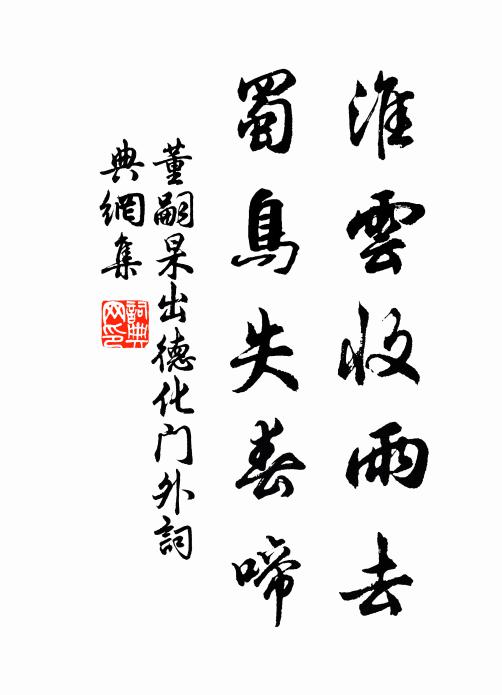 淮雲收雨去
蜀鳥失春啼
董嗣杲出德化门外詞
典網集
詞典网印